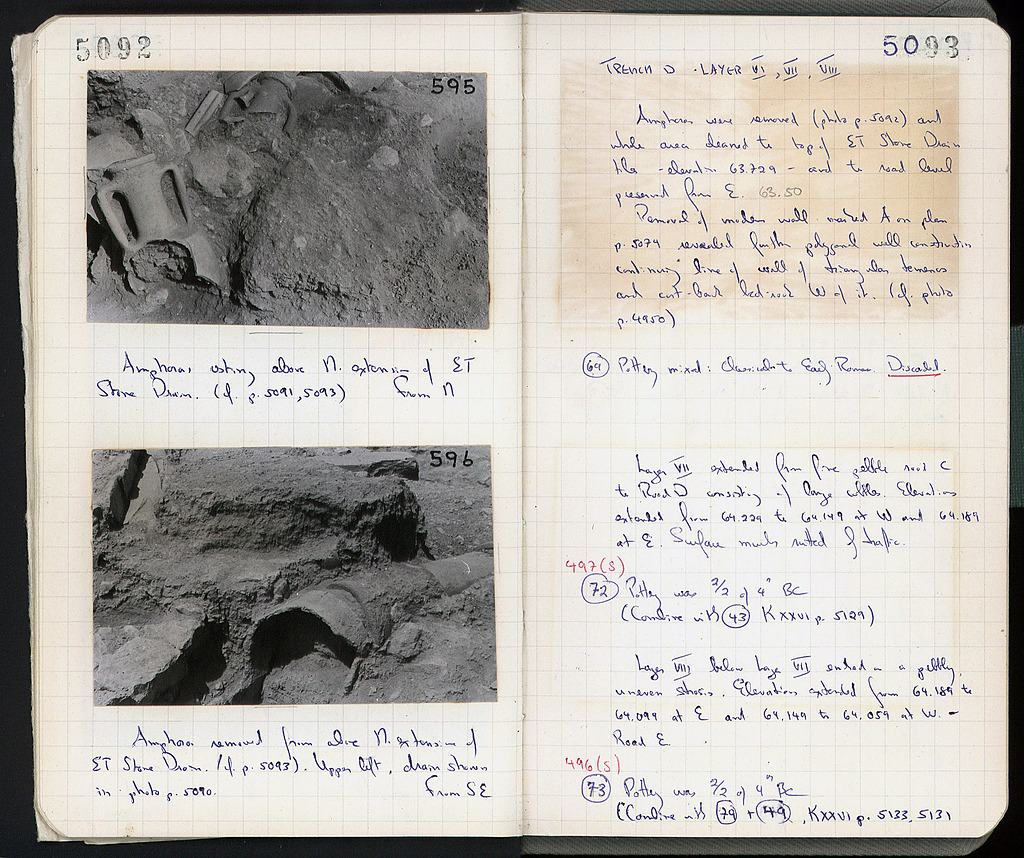 5092
595
Amphoras resting above N. extension of ET
Stone Drain. (cf. p. 5091, 5093) From N
596
Amphoras removed from above N. extension of
ET Stone Drain. (cf. p. 5093). Upper left, drain shown
in photo p. 5090. From SE
5093
TRENCH D - LAYER VI, VII, VIII
Amphoras were removed (photo p. 5092) and
whole area cleaned to top of ET Stone Drain
tile - elevation 63.729 - and to road level
preserved from E. 63.50
Removal of modern wall marked A on plan
p. 5074 revealed further polygonal wall construction
continuing line of wall of triangular temenos
and cut-back bed-rock W of it. (cf. photo
p. 4950)
69 Pottery mixed: Classical to Early Roman. Discarded.
Layer VII extended from fine pebble road C
to Road D consisting of large cobbles. Elevations
extended from 64.229 to 64.149 at W and 64.189
at E. Surface much rutted by traffic.
497(S)
72 Pottery was 2/2 of 4" BC
(Combine with 43 KXXVI p. 5129)
Layer VIII below Layer VII ended on a pebbly
uneven strosis. Elevations extended from 64.189 to
64.099 at E and 64.149 to 64.059 at W. -
Road E.
496(S)
73 Pottery was 2/2 of 4" BC
(Combine with 79 + 49, KXXVI p. 5133, 5131